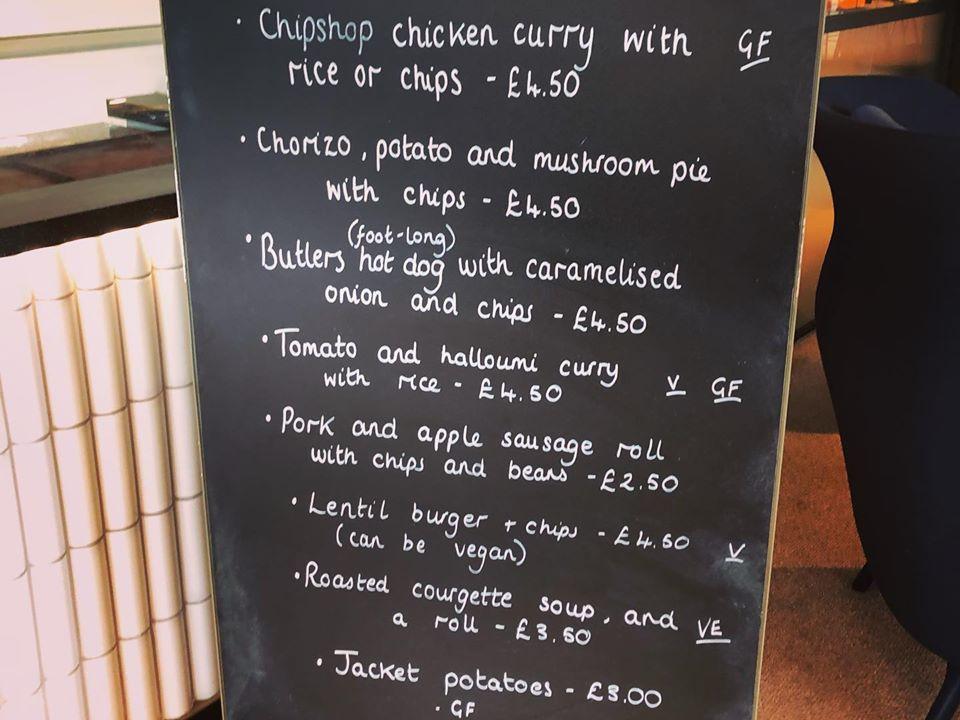 · Chipshop chicken curry with GF
rice or chips - £4.50
· Chorizo, potato and mushroom pie
with chips - £4.50
(foot-long)
· Butlers hot dog with caramelised
onion and chips - £4.50
· Tomato and halloumi curry
with rice - £4.50 V GF
· Pork and apple sausage roll
with chips and beans - £2.50
· Lentil burger + chips - £4.50
(can be vegan) V
· Roasted courgette soup, and
a roll - £3.50 VE
· Jacket potatoes - £3.00
· GF